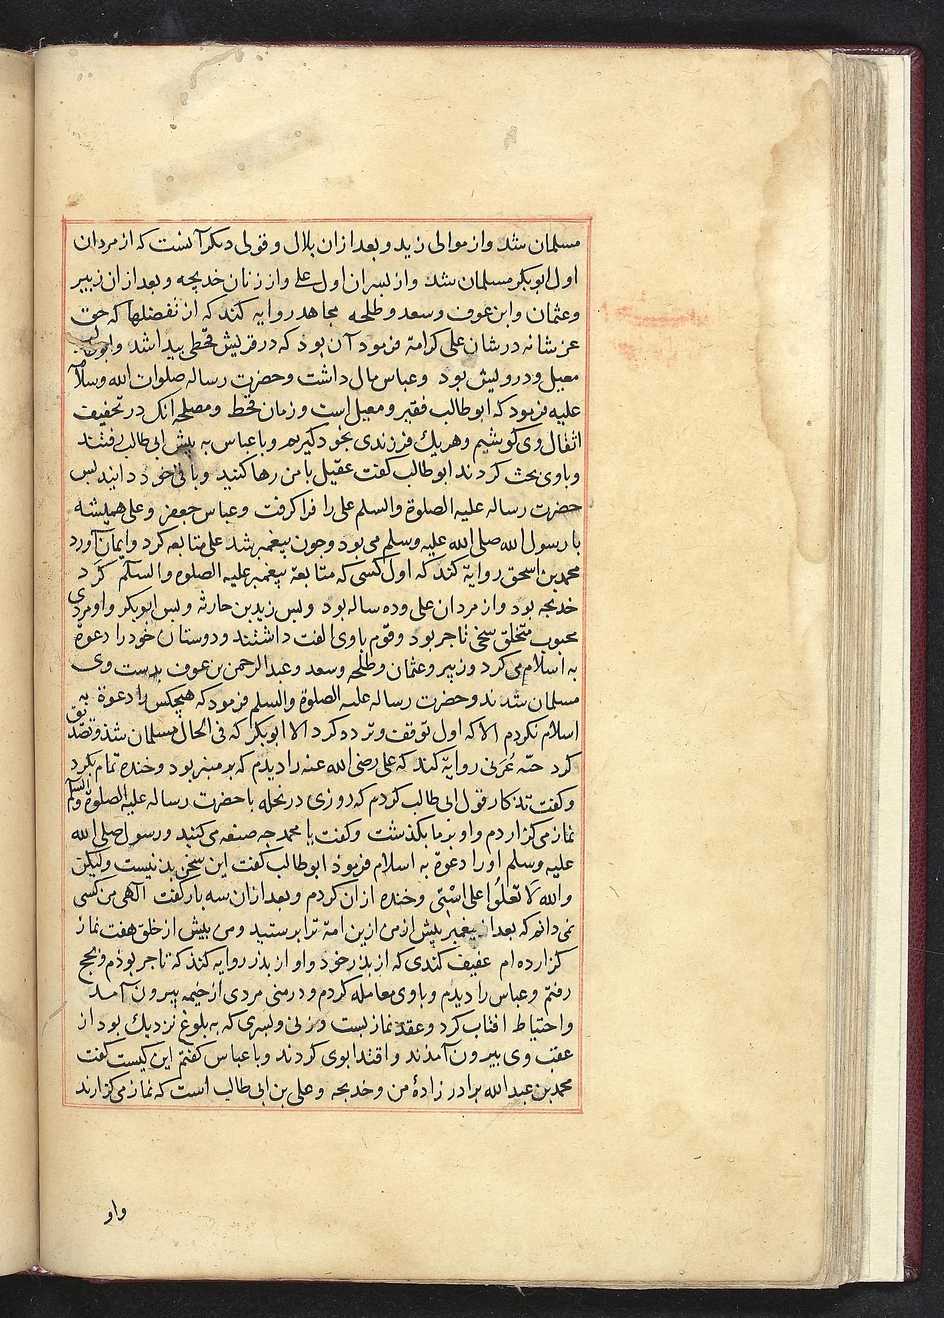 مسلمان شد واز موالی زید و بعد ازان بلال و قولی دیکر آنست که از مردان
اول ابوبکر مسلمان شد واز بسران اول علی واز زنان خدیجه و بعد ازان زبیر
وعثمان وابن عوف وسعد وطلحه مجاهد روایه کند که از تفضلها که حق
عز شانه در شان علی کرامة فرمود آن بود که در قریش قحطی بیدا شد وابوطالب
معیل و درویش بود وعباس مال داشت و حضرت رساله صلوات الله وسلامه
علیه فرمود که ابوطالب فقیر و معیل است و زمان قحط و مصلحه انک در تخفیف
اثقال وی کوشیم وهریك فرزندی بخود کیریم وبا عباس به بیش ابی طالب رفتند
وباوی بحث کردند ابوطالب کفت عقیل با من رها کنید وباقی خود دانید بس
حضرت رساله علیه الصلوة والسلم علی را فرا کرفت وعباس جعفر وعلی همیشه
با رسول الله صلی الله علیه وسلم می بود وجون بیغمبر شد علی متابعه کرد وایمان آورد
محمد بن اسحق روایة کند که اول کسی که متابعه بیغمبر علیه الصلوه والسلم کرد
خدیجه بود واز مردان علی وده ساله بود وبس زید بن حارثه وبس ابوبکر واو مردی
محبوب متخلق سخی تاجر بود وقوم باوی الفت داشتند ودوستان خود را دعوة
به اسلام می کرد وزبیر وعثمان وطلحه وسعد وعبد الرحمن بن عوف بدست وی
مسلمان شدند وحضرت رساله علیه الصلوة والسلم فرمود که هیچکس را دعوة به
اسلام نکردم الا که اول توقف وتردد کرد الا ابوبکر که فی الحال مسلمان شد وتصدیق
کرد حبّه عُرَنی روایة کند که علی رضی الله عنه را دیدم که بر منبر بود وخنده تمام بکرد
وکفت تذکار قول ابی طالب کردم که روزی در نخله با حضرت رساله علیه الصلوة والسلم
نماز می کزاردم واو بر ما بکذشت وکفت یا محمد جه صنعه می کنید ورسول صلی الله
علیه وسلم اورا دعوة به اسلام فرمود ابوطالب کفت این سخن بد نیست ولیکن
والله لا تعلُوا علی اسْتی وخنده ازان کردم وبعد ازان سه بار کفت الهی من کسی
نمی دانم که بعد از بیغمبر بیش از من ازین امة ترا برستید ومن بیش از خلق هفت نماز
کزارده ام عفیف کندی که از بذر خود واو از بذر روایه کند که تاجر بوذم وبحج
رفتم وعباس را دیدم وباوی معامله کردم ودر منی مردی از خیمه بیرون آمد
واحتیاط افتاب کرد وعقد نماز بست وزنی وبسری که به بلوغ نزدیك بود از
عقب وی بیرون آمدند واقتدا بوی کردند وبا عباس کفتم این کیست کفت
محمد بن عبد الله برادر زادهٔ من وخدیجه وعلی بن ابی طالب است که نماز می کزارند
واو